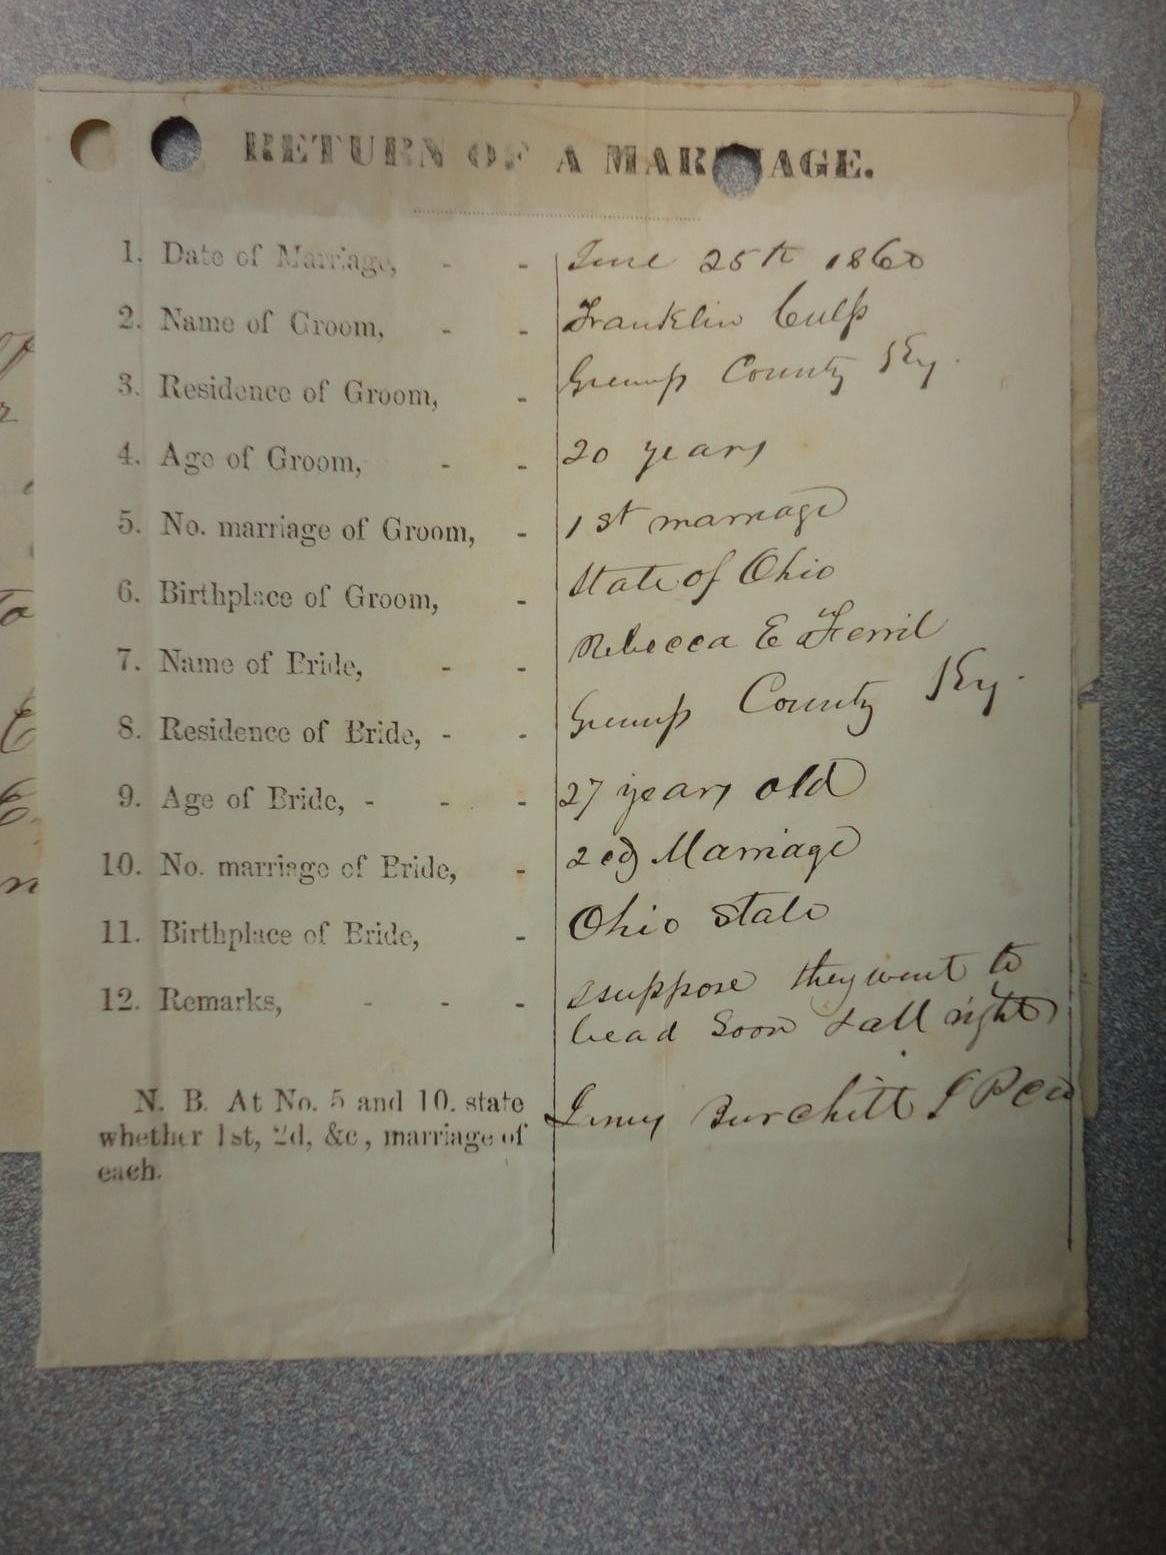 RETURN OF A MARRIAGE.
1. Date of Marriage, - - June 25th 1860
2. Name of Groom, - - Franklin Culp
3. Residence of Groom, - Greenup County Ky.
4. Age of Groom, - - 20 years
5. No. marriage of Groom, - 1st marriage
6. Birthplace of Groom, - State of Ohio
7. Name of Bride, - - Rebecca E Ferril
8. Residence of Bride, - - Greenup County Ky.
9. Age of Bride, - - - 27 years old
10. No. marriage of Bride, - 2ed Marriage
11. Birthplace of Bride, - Ohio State
12. Remarks, - - - I suppose they went to
bead Soon & all right
N. B. At No. 5 and 10. state
whether 1st, 2d, &c, marriage of
each.
Burchitt J P